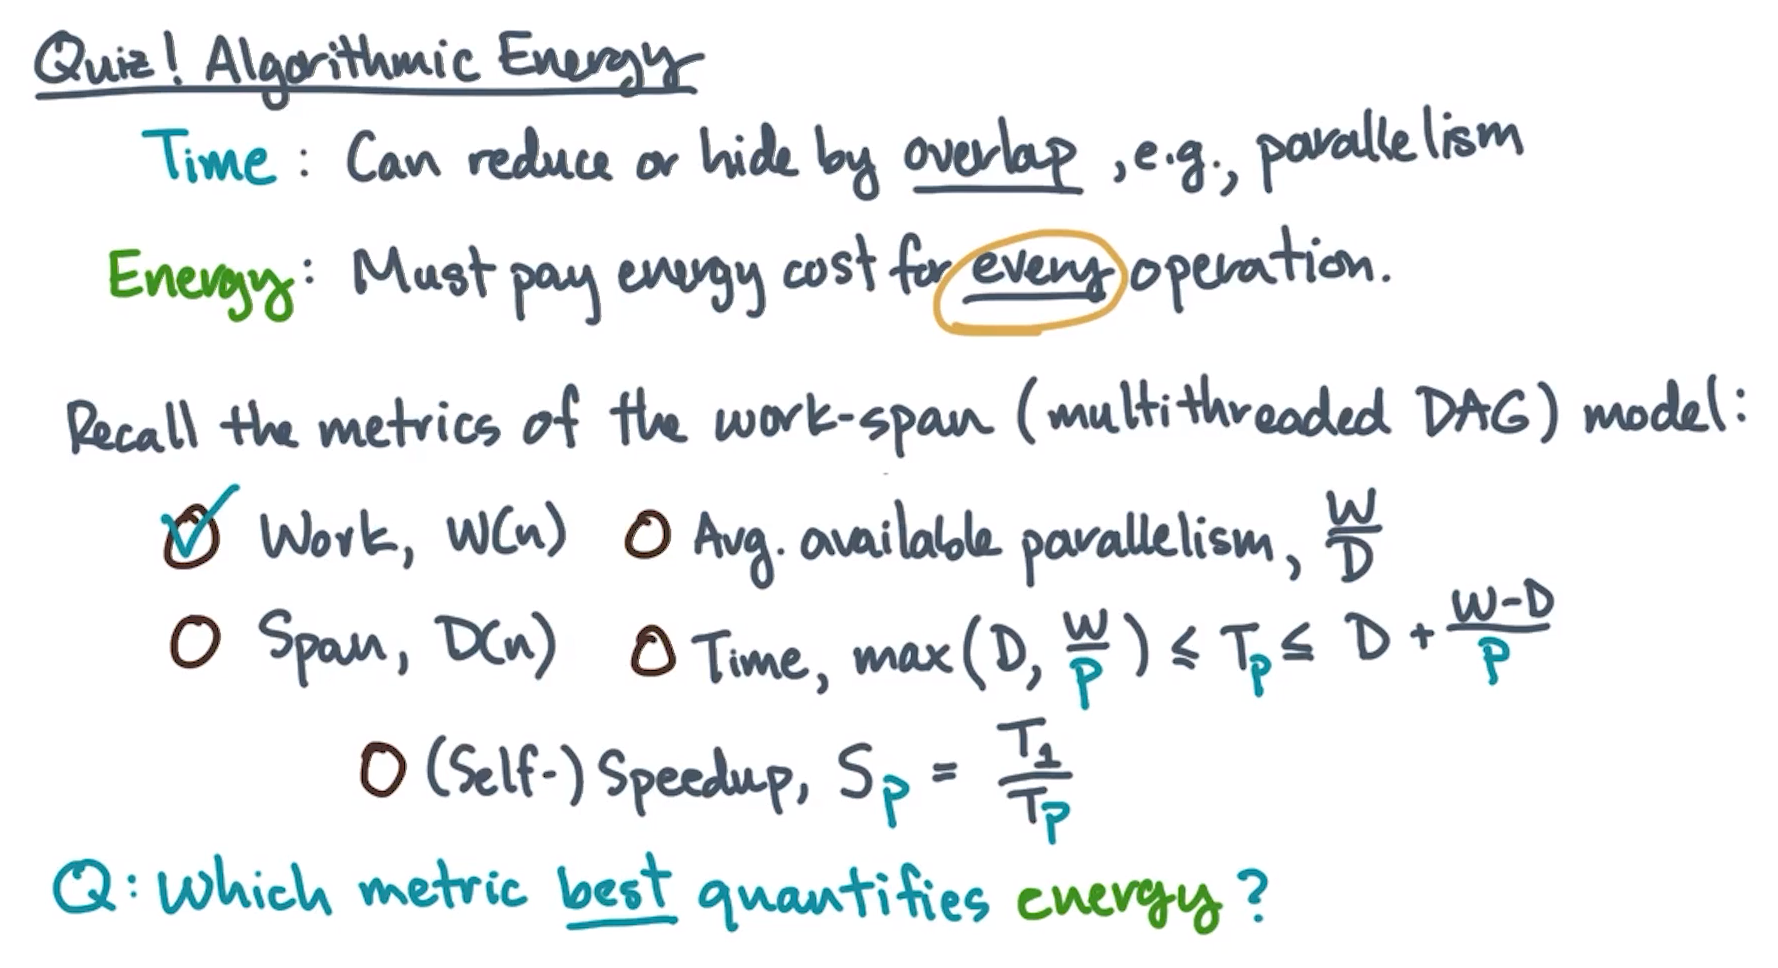 Quiz! Algorithmic Energy
Time: Can reduce or hide by overlap, e.g., parallelism
Energy: Must pay energy cost for every operation.
Recall the metrics of the work-span (multithreaded DAG) model:
Work, W(n) Avg. available parallelism, W/D
Span, D(n) Time, max(D, W/P) ≤ Tp ≤ D + (W-D)/P
(Self-) Speedup, Sp = T1/Tp
Q: Which metric best quantifies energy?